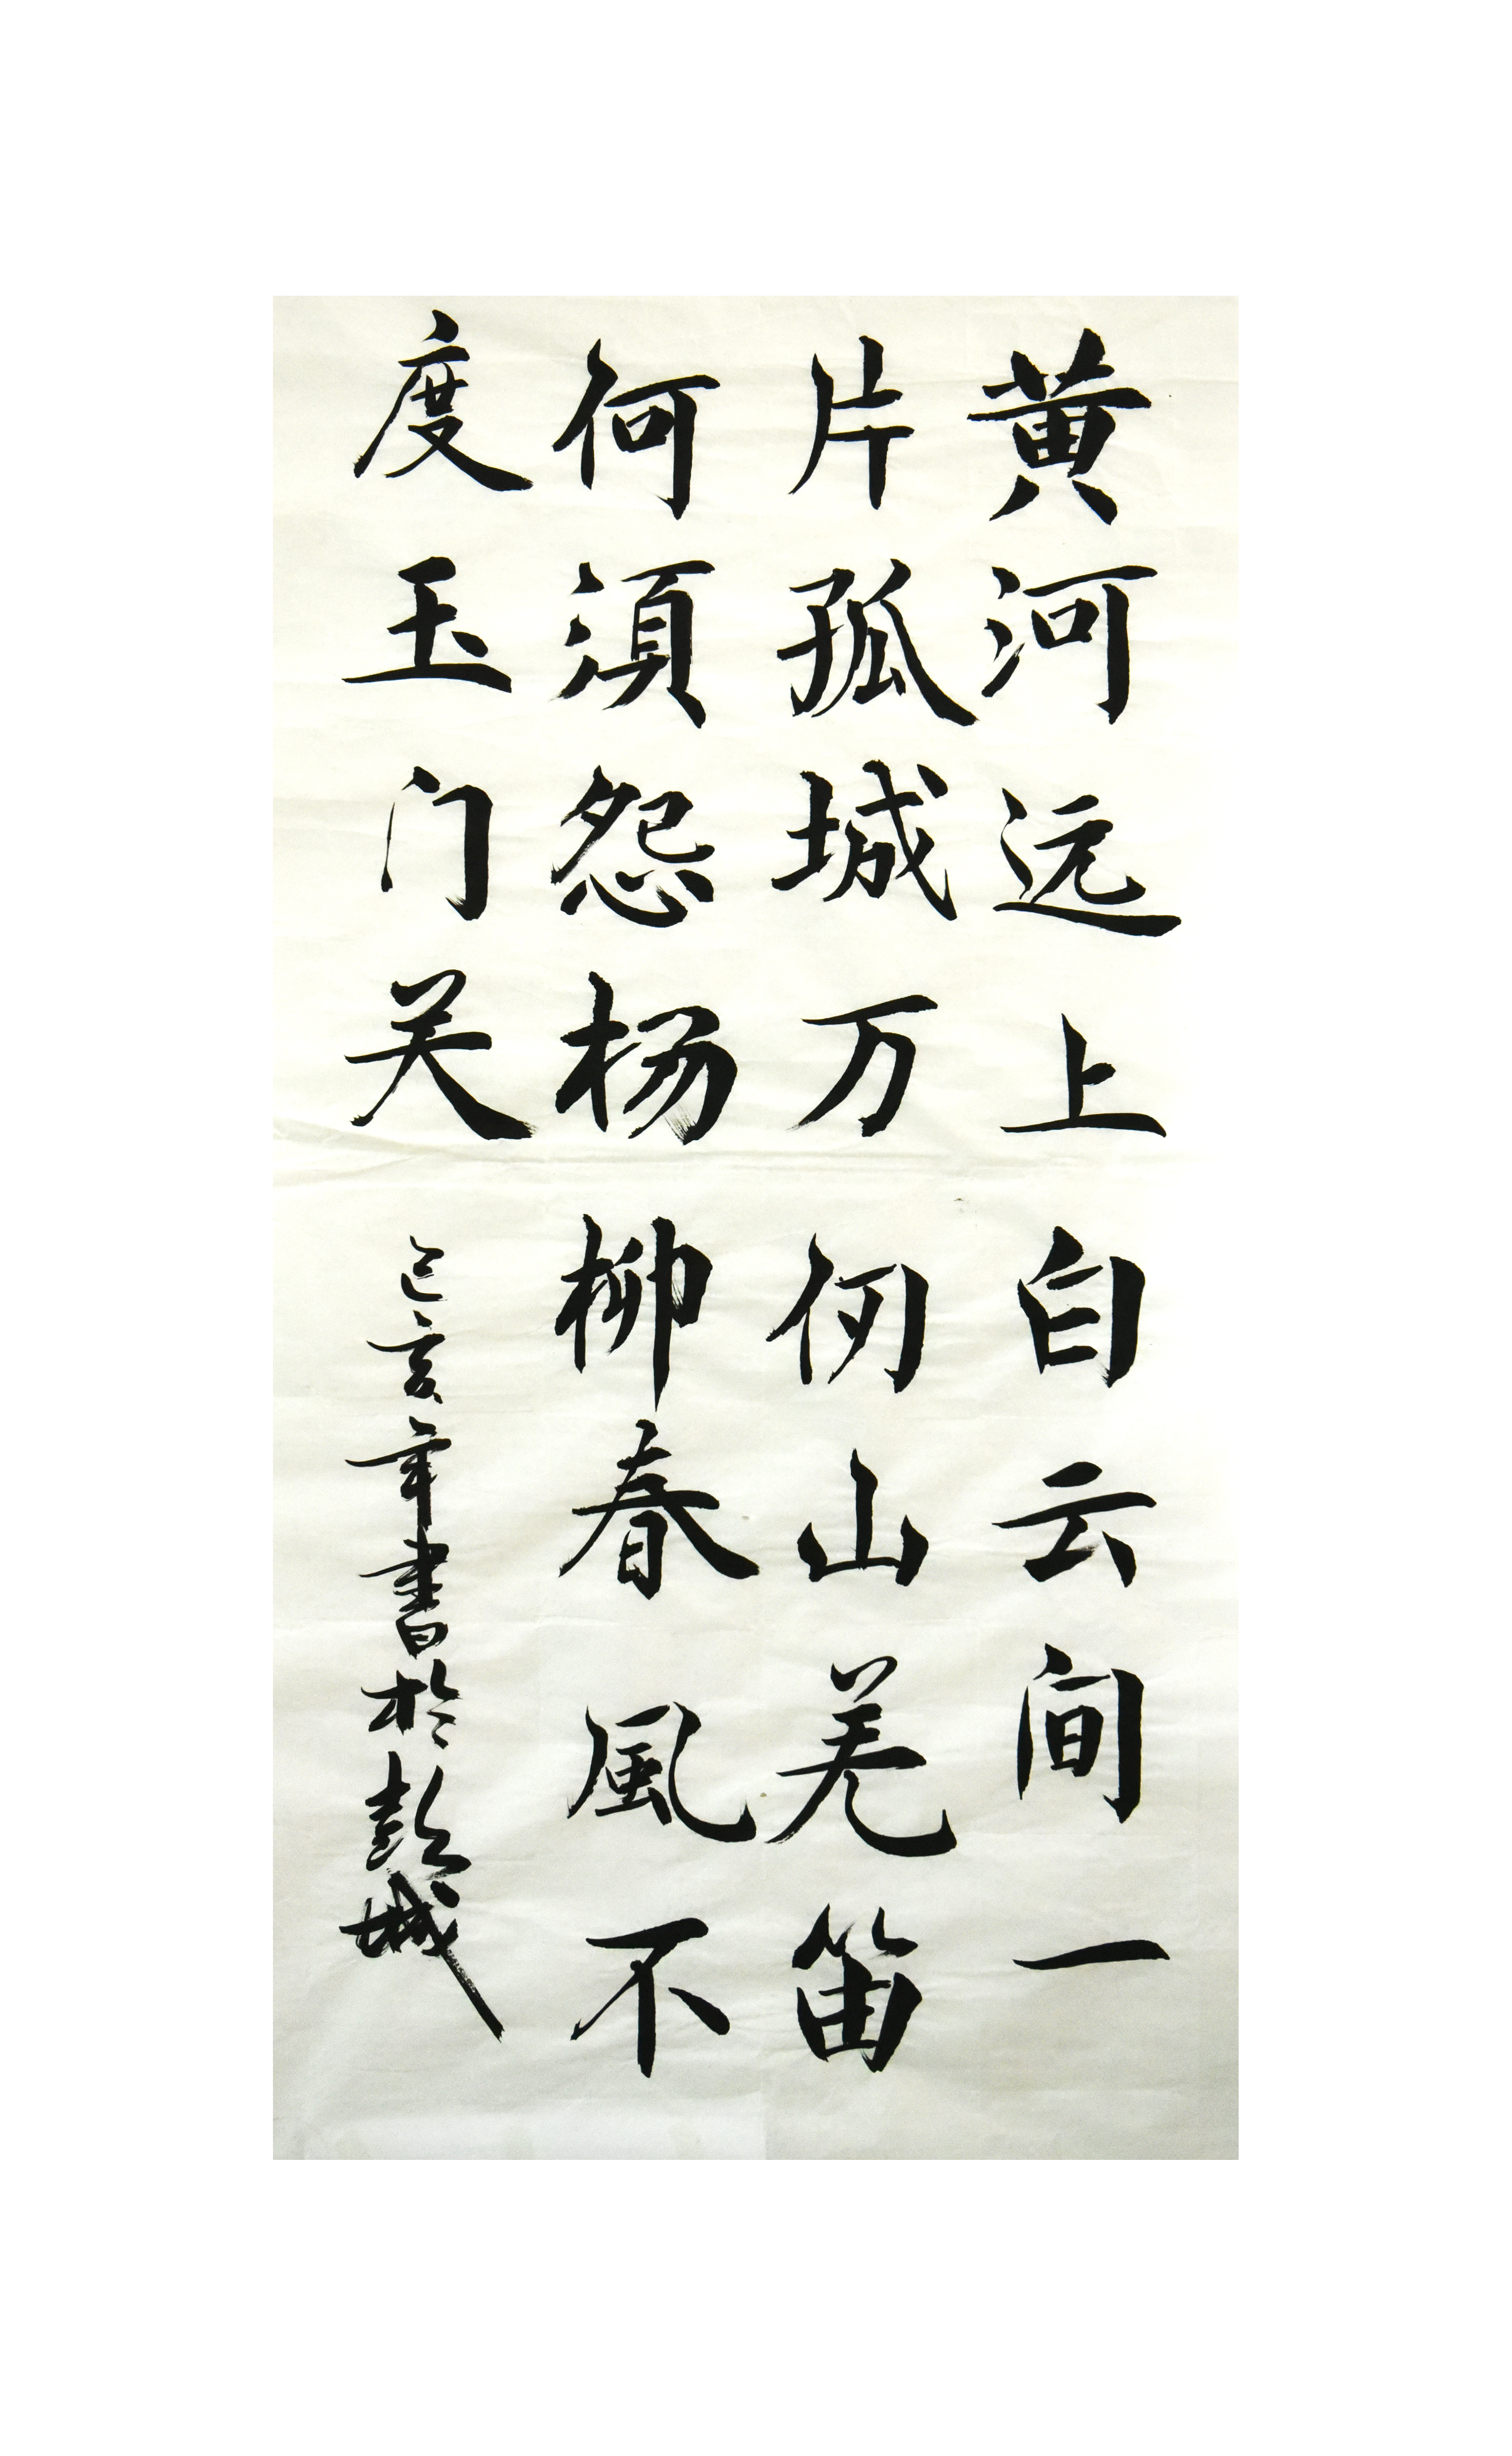 黄河远上白云间一
片孤城万仞山羌笛
何須怨杨柳春風不
度玉门关
己亥年書於彭城